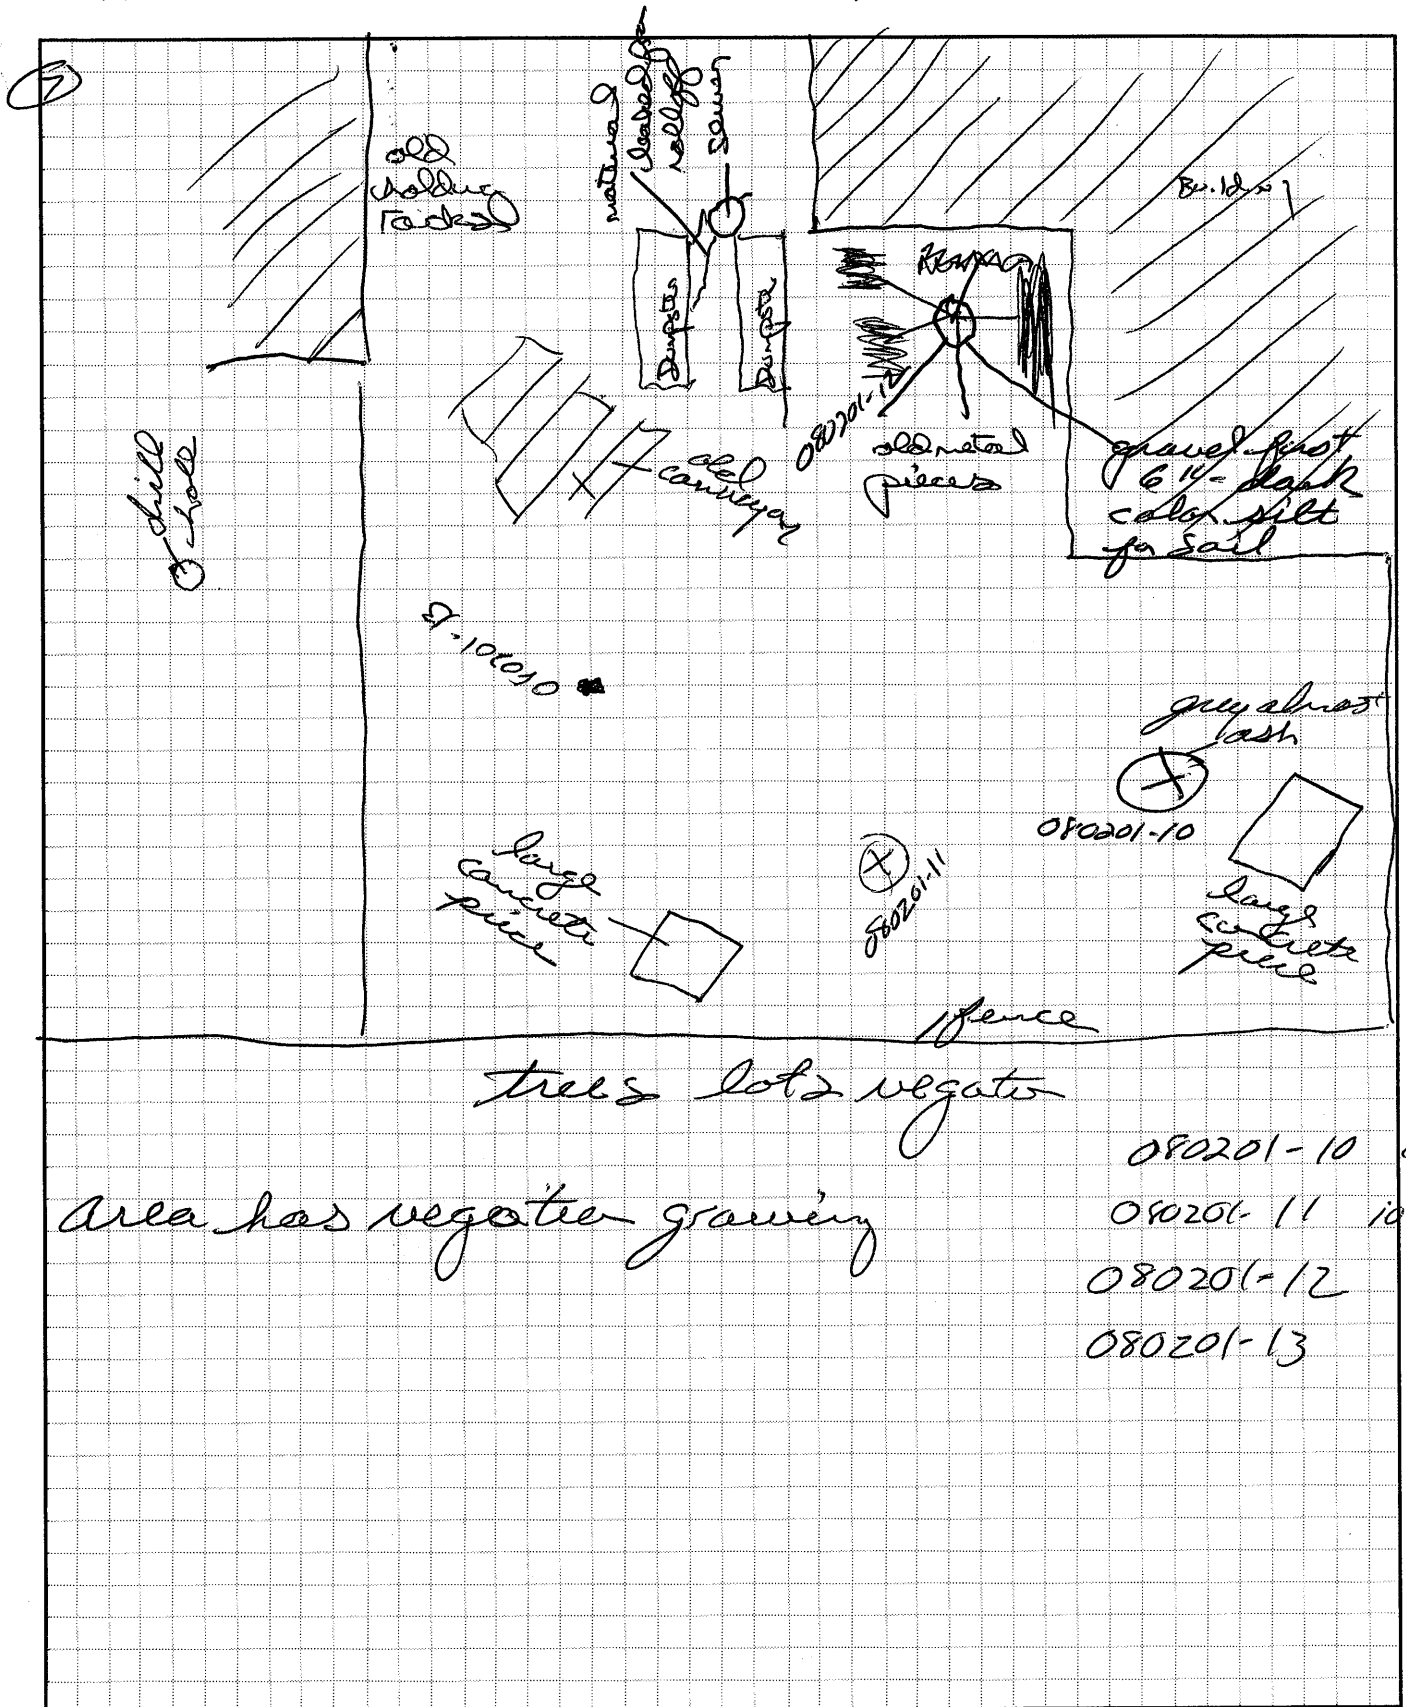 old
holding
Tanks
material
leaked from
rolloff
sewer
Building
Dumpster
Dumpster
080201-12
old metal
pieces
gravel first
6"- dark
color silt
for soil
old
conveyor
drill
hole
080201-13
grey almost
ash
080201-10
080201-11
large
concrete
piece
large
concrete
piece
fence
trees lots vegato
080201-10
area has vegatien growing
080201-11
080201-12
080201-13